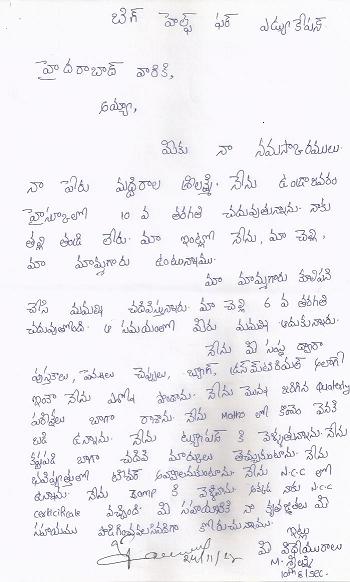 బిగ్ హెల్ప్ ఫర్ ఎడ్యుకేషన్
హైదరాబాద్ వారికి,
అయ్యా,
మీకు నా నమస్కారములు.
నా పేరు మద్దిరాల శ్రీలక్ష్మి. నేను ఉండాజవరం
హైస్కూలులో 10 వ తరగతి చదువుతున్నాను. నాకు
తల్లి తండ్రి లేరు. మా ఇంట్లో నేను, మా చెల్లి,
మా మామ్మగారు ఉంటున్నాము.
మా మామ్మగారు కూలిపని
చేసి మమ్మల్ని చదివిస్తున్నారు. మా చెల్లి 6 వ తరగతి
చదువుతోంది. ఆ సమయంలో మీరు మమ్మల్ని ఆదుకున్నారు.
నేను మీ సంస్థ ద్వారా
పుస్తకాలు, పెన్నులు చెప్పులు, బ్యాగ్,
ఇంకా నేను ఎన్నో పొందాను. నేను మొన్న జరిగిన Quaterly
పరీక్షలు బాగా రాశాను. నేను Maths లో కొంచెం వెనక
బడి ఉన్నాను. నేను ట్యూషన్ కి వెళ్ళుతున్నాను. నేను
కష్టపడి బాగా చదివి మార్కులు తెచ్చుకుంటాను. నేను
భవిష్యత్తులో టీచర్ అవ్వాలనుకుంటున్నాను. నేను N.C.C లో
ఉన్నాను. నేను camp కి వెళ్లాను. అక్కడ నాకు N.C.C
certificate వచ్చింది. మీ సహాయానికి నా కృతజ్ఞతలు మీ
సహాయము కోరుచున్నాను.
ఇట్లు
మీ విధేయురాలు
24/11/12
M. శ్రీలక్ష్మి
10th B/sec.